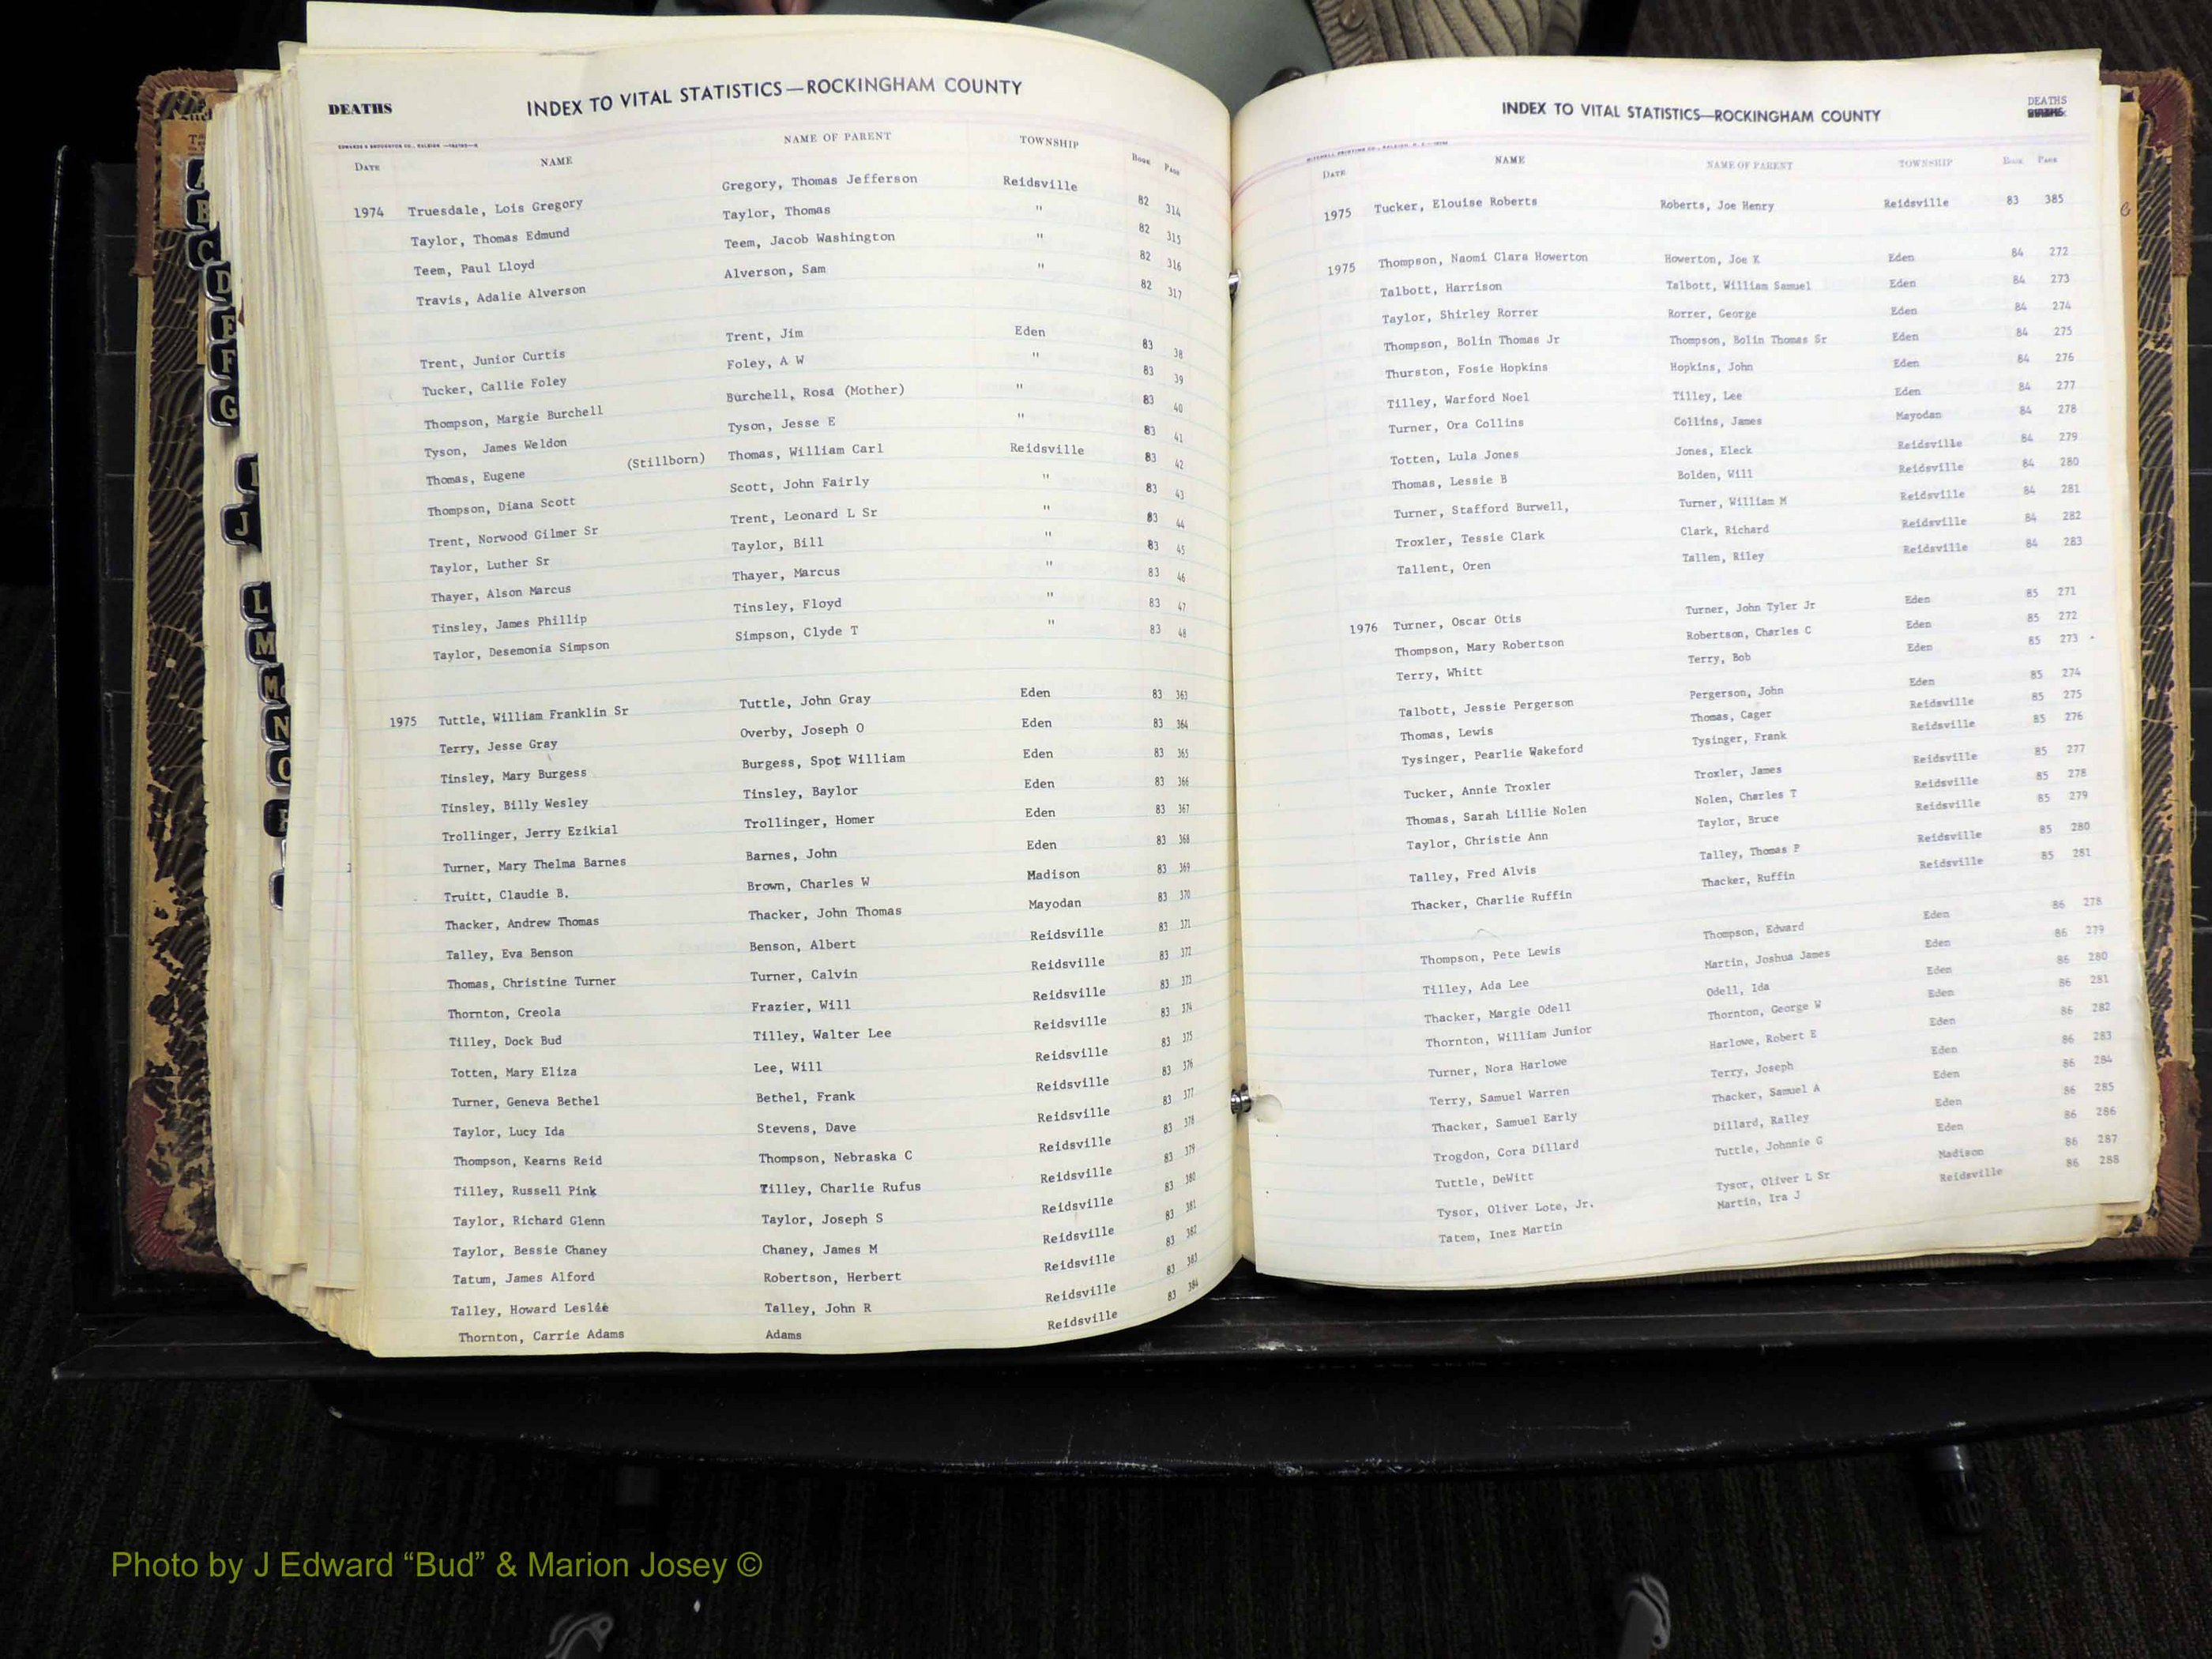 DEATHS
INDEX TO VITAL STATISTICS—ROCKINGHAM COUNTY
DATE NAME NAME OF PARENT TOWNSHIP BOOK PAGE
1974 Truesdale, Lois Gregory Gregory, Thomas Jefferson Reidsville 82 314
Taylor, Thomas Edmund Taylor, Thomas " 82 315
Teem, Paul Lloyd Teem, Jacob Washington " 82 316
Travis, Adalie Alverson Alverson, Sam " 82 317
Trent, Junior Curtis Trent, Jim Eden 83 38
Tucker, Callie Foley Foley, A W " 83 39
Thompson, Margie Burchell Burchell, Rosa (Mother) " 83 40
Tyson, James Weldon Tyson, Jesse E " 83 41
Thomas, Eugene (Stillborn) Thomas, William Carl Reidsville 83 42
Thompson, Diana Scott Scott, John Fairly " 83 43
Trent, Norwood Gilmer Sr Trent, Leonard L Sr " 83 44
Taylor, Luther Sr Taylor, Bill " 83 45
Thayer, Alson Marcus Thayer, Marcus " 83 46
Tinsley, James Phillip Tinsley, Floyd " 83 47
Taylor, Desemonia Simpson Simpson, Clyde T " 83 48
1975 Tuttle, William Franklin Sr Tuttle, John Gray Eden 83 363
Terry, Jesse Gray Overby, Joseph O Eden 83 364
Tinsley, Mary Burgess Burgess, Spot William Eden 83 365
Tinsley, Billy Wesley Tinsley, Baylor Eden 83 366
Trollinger, Jerry Ezikial Trollinger, Homer Eden 83 367
Turner, Mary Thelma Barnes Barnes, John Eden 83 368
Truitt, Claudie B. Brown, Charles W Madison 83 369
Thacker, Andrew Thomas Thacker, John Thomas Mayodan 83 370
Talley, Eva Benson Benson, Albert Reidsville 83 371
Thomas, Christine Turner Turner, Calvin Reidsville 83 372
Thornton, Creola Frazier, Will Reidsville 83 373
Tilley, Dock Bud Tilley, Walter Lee Reidsville 83 374
Totten, Mary Eliza Lee, Will Reidsville 83 375
Turner, Geneva Bethel Bethel, Frank Reidsville 83 376
Taylor, Lucy Ida Stevens, Dave Reidsville 83 377
Thompson, Kearns Reid Thompson, Nebraska C Reidsville 83 378
Tilley, Russell Pink Tilley, Charlie Rufus Reidsville 83 379
Taylor, Richard Glenn Taylor, Joseph S Reidsville 83 380
Taylor, Bessie Chaney Chaney, James M Reidsville 83 381
Tatum, James Alford Robertson, Herbert Reidsville 83 382
Talley, Howard Leslie Talley, John R Reidsville 83 383
Thornton, Carrie Adams Adams Reidsville 83 384
INDEX TO VITAL STATISTICS—ROCKINGHAM COUNTY
DEATHS
DATE NAME NAME OF PARENT TOWNSHIP Book Page
1975 Tucker, Elouise Roberts Roberts, Joe Henry Reidsville 83 385
1975 Thompson, Naomi Clara Howerton Howerton, Joe K Eden 84 272
Talbott, Harrison Talbott, William Samuel Eden 84 273
Taylor, Shirley Rorrer Rorrer, George Eden 84 274
Thompson, Bolin Thomas Jr Thompson, Bolin Thomas Sr Eden 84 275
Thurston, Fosie Hopkins Hopkins, John Eden 84 276
Tilley, Warford Noel Tilley, Lee Eden 84 277
Turner, Ora Collins Collins, James Mayodan 84 278
Totten, Lula Jones Jones, Eleck Reidsville 84 279
Thomas, Lessie B Bolden, Will Reidsville 84 280
Turner, Stafford Burwell, Turner, William M Reidsville 84 281
Troxler, Tessie Clark Clark, Richard Reidsville 84 282
Tallent, Oren Tallen, Riley Reidsville 84 283
1976 Turner, Oscar Otis Turner, John Tyler Jr Eden 85 271
Thompson, Mary Robertson Robertson, Charles C Eden 85 272
Terry, Whitt Terry, Bob Eden 85 273
Talbott, Jessie Pergerson Pergerson, John Eden 85 274
Thomas, Lewis Thomas, Cager Reidsville 85 275
Tysinger, Pearlie Wakeford Tysinger, Frank Reidsville 85 276
Tucker, Annie Troxler Troxler, James Reidsville 85 277
Thomas, Sarah Lillie Nolen Nolen, Charles T Reidsville 85 278
Taylor, Christie Ann Taylor, Bruce Reidsville 85 279
Talley, Fred Alvis Talley, Thomas P Reidsville 85 280
Thacker, Charlie Ruffin Thacker, Ruffin Reidsville 85 281
Thompson, Pete Lewis Thompson, Edward Eden 86 278
Tilley, Ada Lee Martin, Joshua James Eden 86 279
Thacker, Margie Odell Odell, Ida Eden 86 280
Thornton, William Junior Thornton, George W Eden 86 281
Turner, Nora Harlowe Harlowe, Robert E Eden 86 282
Terry, Samuel Warren Terry, Joseph Eden 86 283
Thacker, Samuel Early Thacker, Samuel A Eden 86 284
Trogdon, Cora Dillard Dillard, Ralley Eden 86 285
Tuttle, DeWitt Tuttle, Johnnie G Eden 86 286
Tysor, Oliver Lote, Jr. Tysor, Oliver L Sr Madison 86 287
Tatem, Inez Martin Martin, Ira J Reidsville 86 288
A
B
C
D
E
F
G
J
L
M
N
Photo by J Edward “Bud” & Marion Josey ©